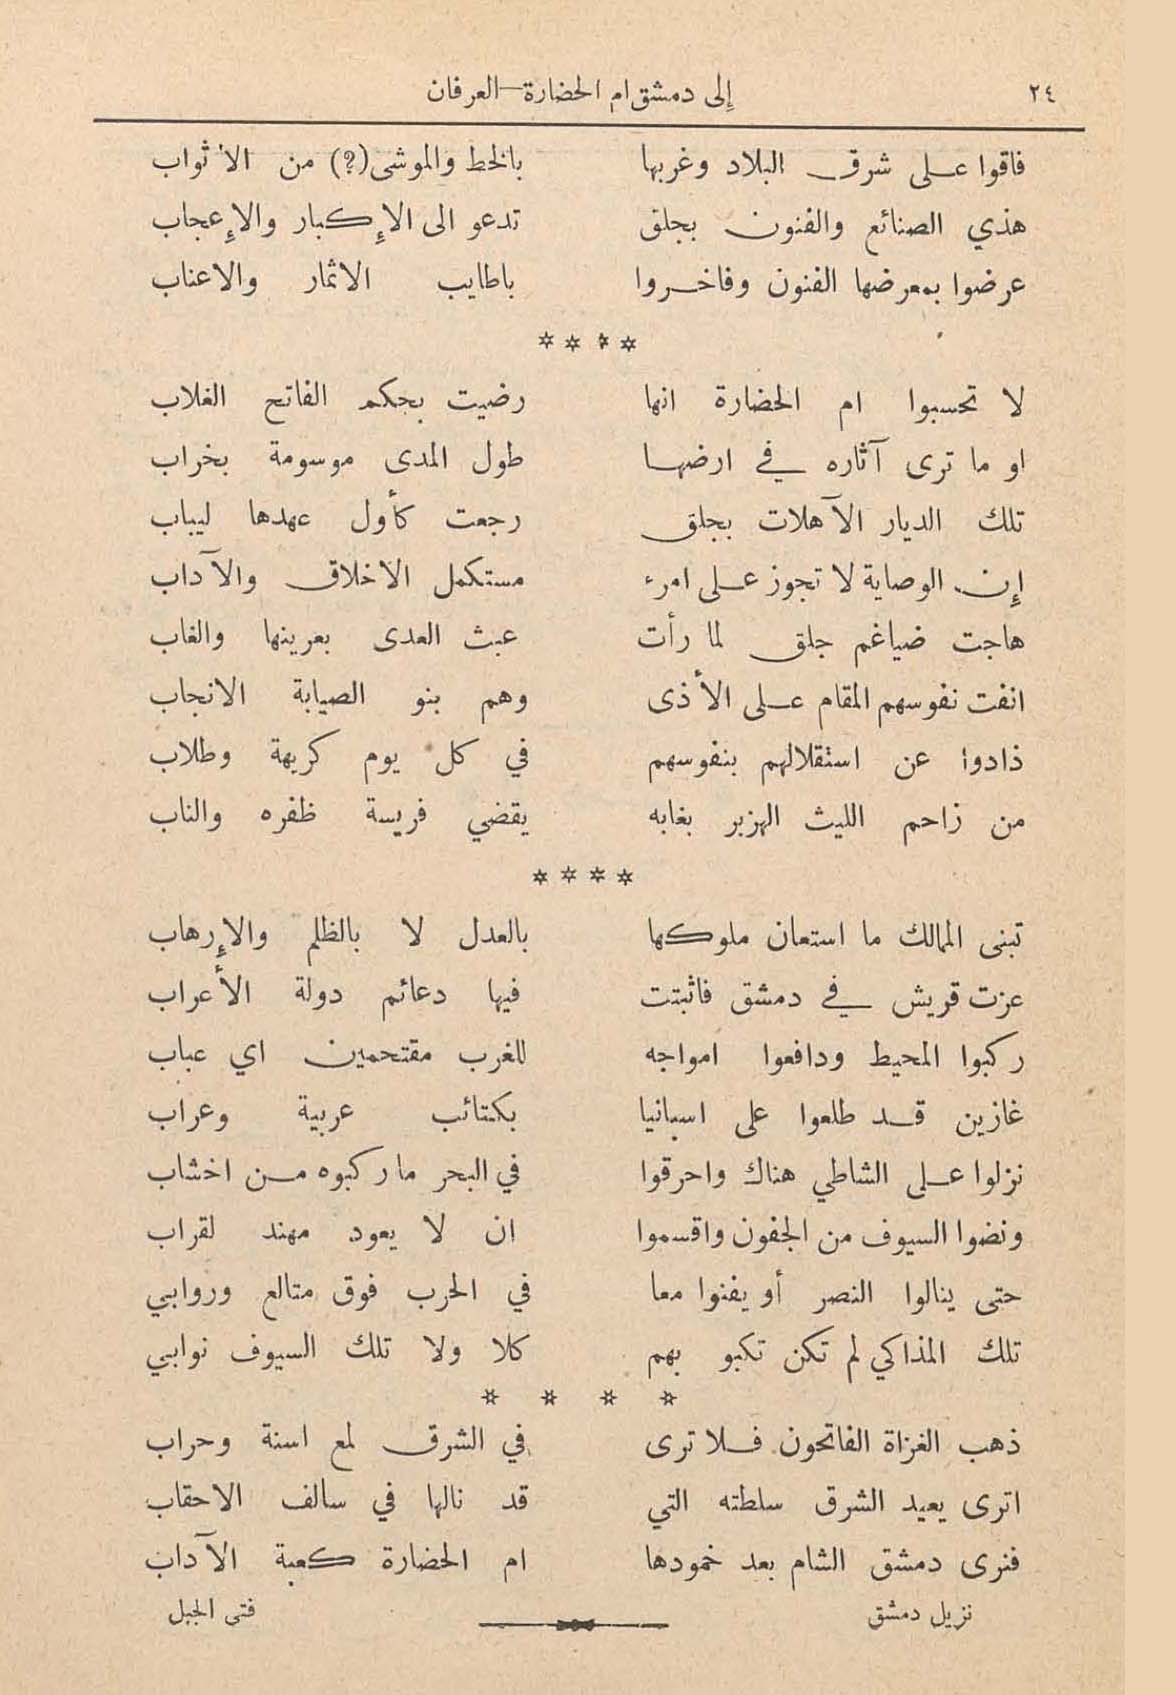 ٢٤ إلى دمشق ام الحضارة – العرفان
فاقوا على شرق البلاد وغربها بالخط والموشى (؟) من الاثواب
هذي الصنائع والفنون بجلق تدعو الى الإكبار والإعجاب
عرضوا بمعرضها الفنون وفاخروا باطايب الاثمار والاعناب
****
لا تحسبوا ام الحضارة انها رضيت بحكم الفاتح الغلاب
او ما ترى آثاره في ارضها طول المدى موسومة بخراب
تلك الديار الآهلات بجلق رجعت كأول عهدها ليباب
إن الوصاية لا تجوز على امرء مستكمل الاخلاق والآداب
هاجت ضياغم جلق لما رأت عبث العدى بعرينها والغاب
انفت نفوسهم المقام على الأذى وهم بنو الصيابة الانجاب
ذادوا عن استقلالهم بنفوسهم في كل يوم كريهة وطلاب
من زاحم الليث الهزبر بغابه يقضي فريسة ظفره والناب
****
تبنى الممالك ما استعان ملوكها بالعدل لا بالظلم والإرهاب
عزت قريش في دمشق فاثبتت فيها دعائم دولة الأعراب
ركبوا المحيط ودافعوا امواجه للغرب مقتحمين اي عباب
غازين قد طلعوا على اسبانيا بكتائب عربية وعراب
نزلوا على الشاطي هناك واحرقوا في البحر ما ركبوه من اخشاب
ونضوا السيوف من الجفون واقسموا ان لا يعود مهند لقراب
حتى ينالوا النصر أو يفنوا معا في الحرب فوق متالع وروابي
تلك المذاكي لم تكن تكبو بهم كلا ولا تلك السيوف نوابي
* * * *
ذهب الغزاة الفاتحون فلا ترى في الشرق لمع اسنة وحراب
اترى يعيد الشرق سلطته التي قد نالها في سالف الاحقاب
فنرى دمشق الشام بعد خمودها ام الحضارة كعبة الآداب
نزيل دمشق فتى الجبل